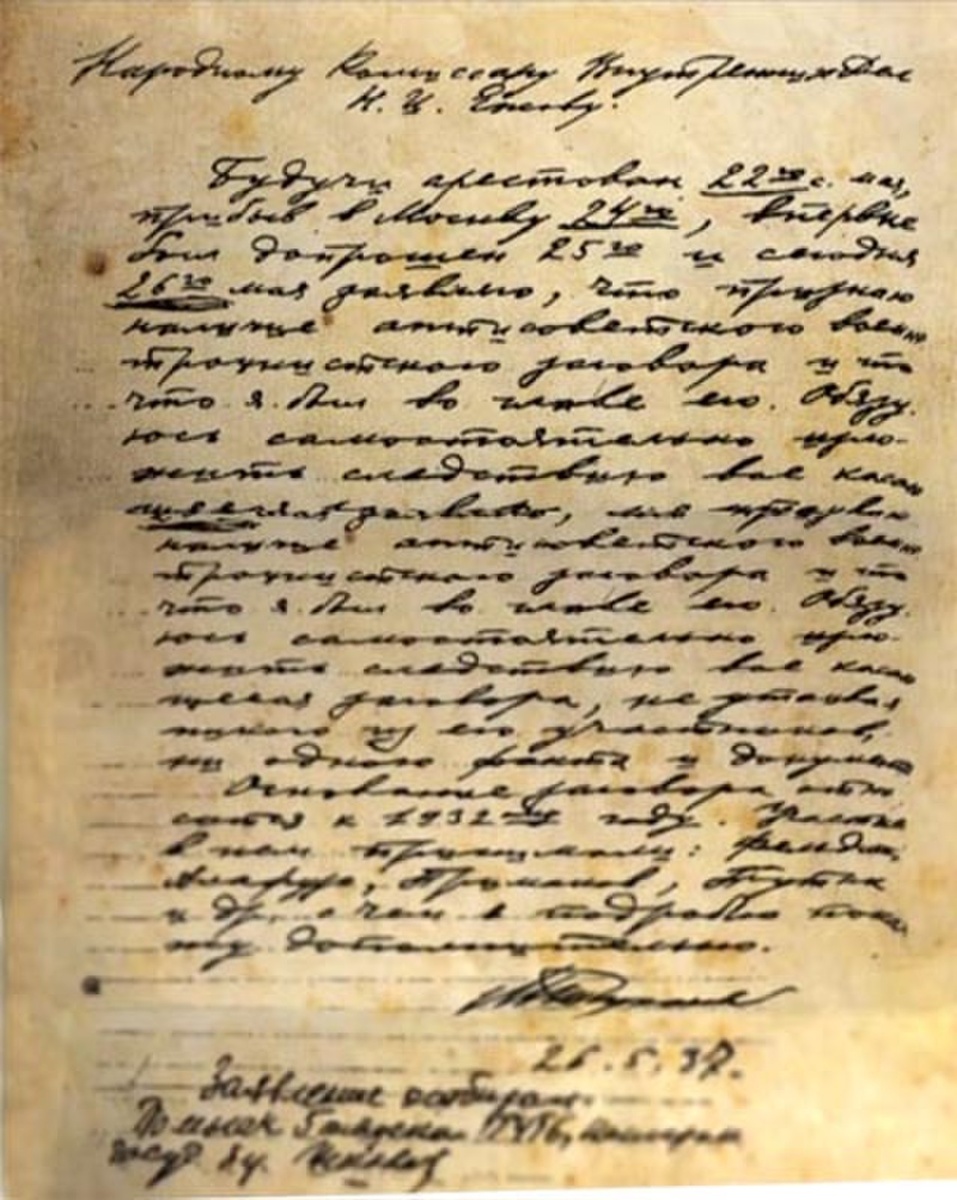 Народному Комиссару Внутренних Дел
Н. И. Ежову.
Будучи арестован 22го с. мая,
прибыв в Москву 24го, впервые
был допрошен 25го и сегодня
26го мая заявляю, что признаю
наличие антисоветского военно
троцкистского заговора и то
что я был во главе его. Обязу-
юсь самостоятельно изло-
жить следствию все касаю
наличие антисоветского военно
троцкистского заговора и то
что я был во главе его. Обязу-
юсь самостоятельно изло-
жить следствию все касаю
щееся заговора, не утаивая
никого из его участников,
ни одного факта и документа
Основание заговора отно
сится к 1932му году. Участие
в нем принимали: Фельдман,
Алафузо, Примаков, Путна
и др., о чем я подробно пока
жу дополнительно.
26.5.37.
Заявление отобрал: